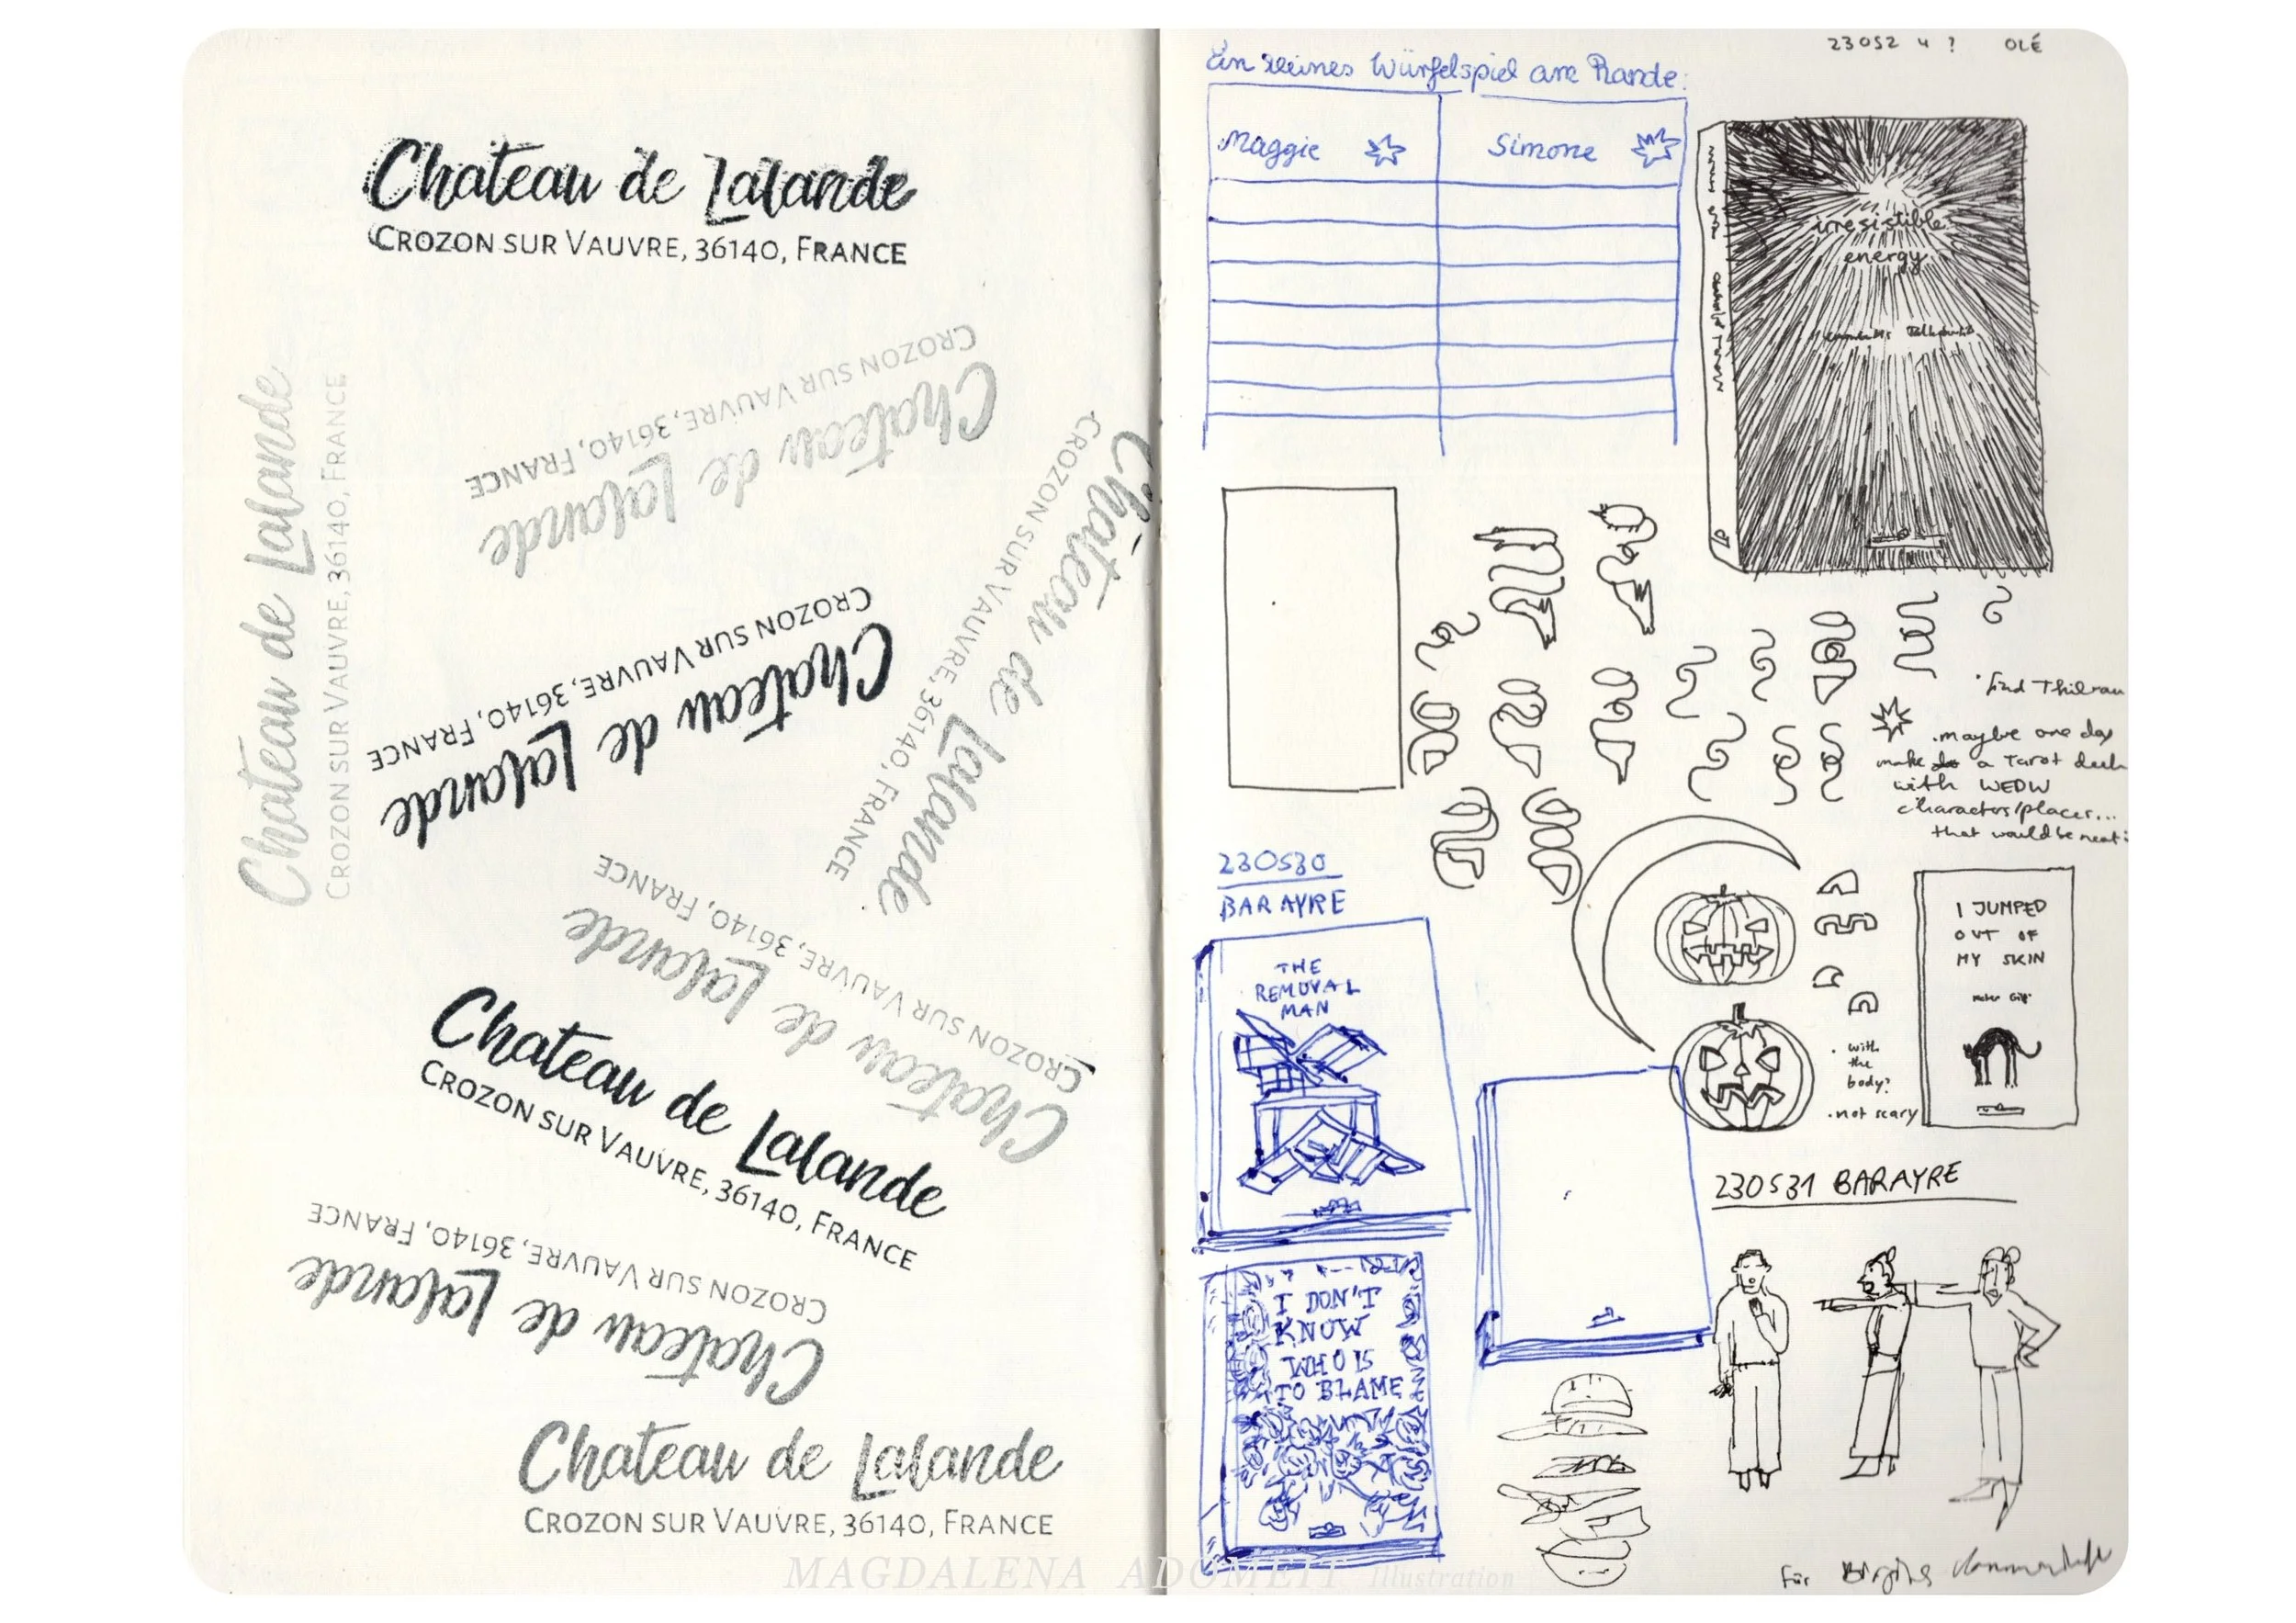 Chateau de Lalande
Crozon sur Vauvre, 36140, France
Crozon sur Vauvre, 36140, France
Chateau de Lalande
Chateau de Lalande
Crozon sur Vauvre, 36140, France
Chateau de Lalande
Crozon sur Vauvre, 36140, France
Crozon sur Vauvre, 36140, France
Chateau de Lalande
Crozon sur Vauvre, 36140, France
Chateau de Lalande
Chateau de Lalande
Crozon sur Vauvre, 36140, France
Crozon sur Vauvre, 36140, France
Chateau de Lalande
Chateau de Lalande
Crozon sur Vauvre, 36140, France
23052 4 ? OLÉ
Ein kleines Würfelspiel am Rande:
Maggie Simone
irresistible
energy
find
maybe one day
make a Tarot deck
with WEDW
characters/places...
that would be neat
230530
BARAYRE
THE
REMOVAL
MAN
I DON'T
KNOW
WHO IS
TO BLAME
I JUMPED
OUT OF
MY SKIN
with
the
body?
not scary
230531 BARAYRE
für
MAGDALENA ADOMEIT Illustration